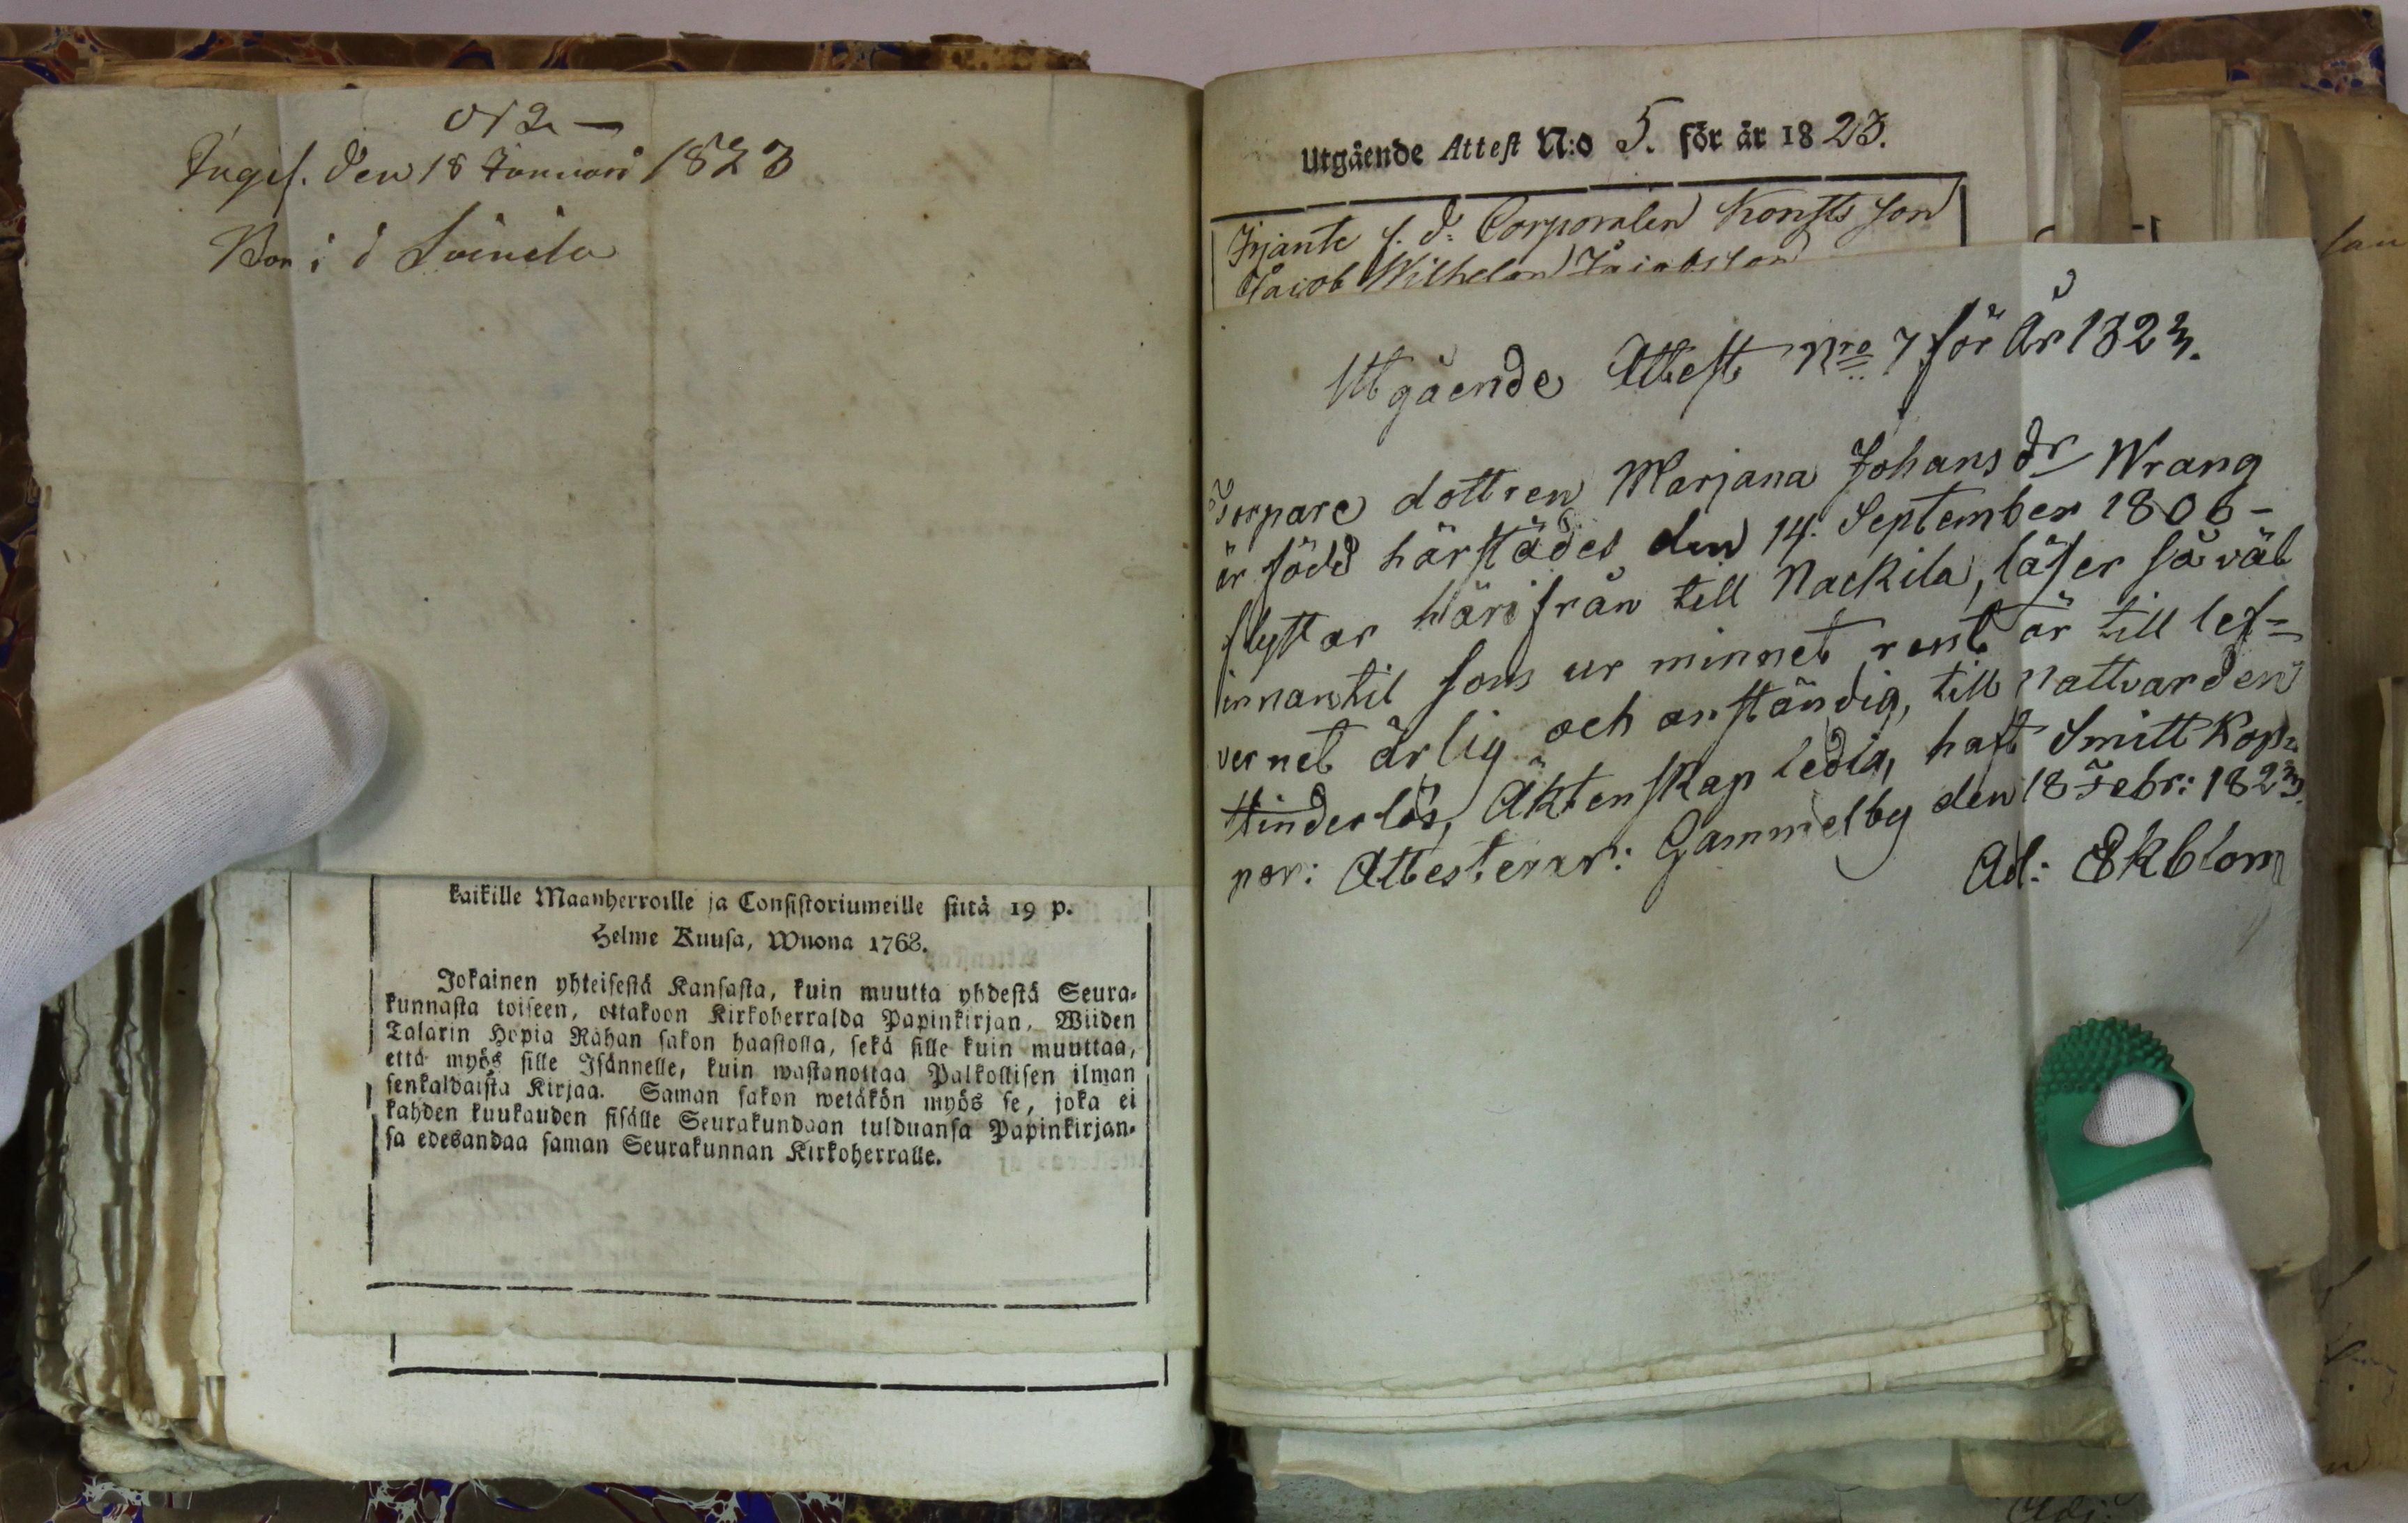 No 2 —
Ingif. den 18 Januari 1823
Bor i Soinila
kaikille Maanherroille ja Consistoriumeille siitä 19 p.
Helme Kuusa, Wuona 1768.
Jokainen yhteisestä Kansasta, kuin muutta yhdestä Seura-
kunnasta toiseen, ottakoon Kirkoherralda Papinkirjan, Wiiden
Talarin Hopia Rahan sakon haastolla, sekä sille kuin muuttaa,
että myös sille Isännelle, kuin wastanottaa Palkollisen ilman
senkaldaista Kirjaa. Saman sakon wetäkön myös se, joka ei
kahden kuukauden sisälle Seurakundaan tulduansa Papinkirjan-
sa edesandaa saman Seurakunnan Kirkoherralle.
Utgående Attest N:o 5. för år 1823.
f. d. Corporalen Konsts son
Jacob Wilhelm Jacobsson
Utgående Attest Nro 7 för År 1823.
Torpare dottren Marjana Johansdr Wrang
är född härstädes den 14. September 1806 -
flyttar härifrån till Nackila, läser så väl
innantil som ur minnet rent är till lef-
vernet ärlig och anständig, till Nattvarden
hinderlös, Äktenskap ledig, haft Smittkop-
por: Attesterar: Gammelby den 18 Febr: 1823.
Ad: Ekblom